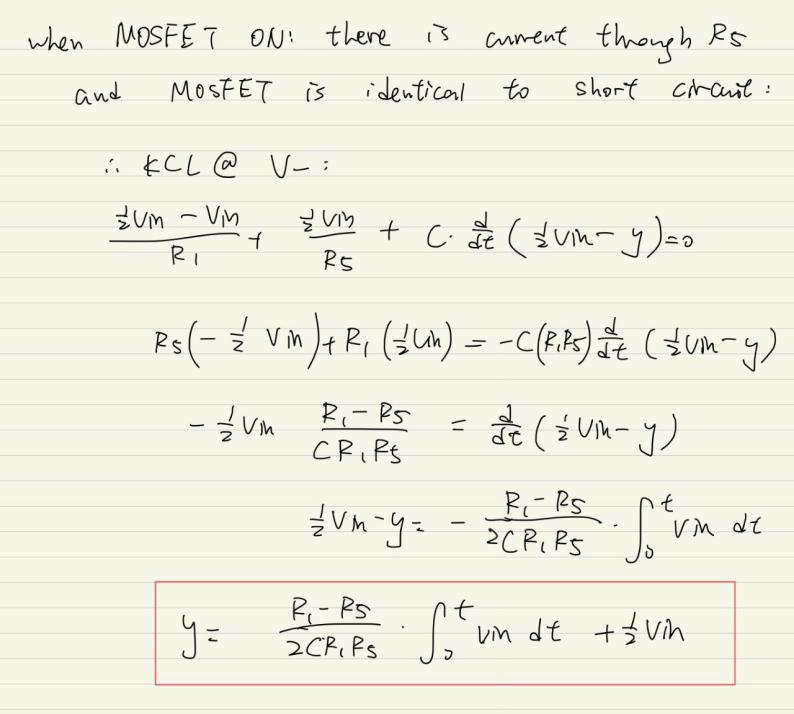 when MOSFET ON: there is current through R5
and MOSFET is identical to short circuit:
∴ KCL @ V- :
(½Vin - Vin)/R1 + ½Vin/R5 + C· d/dt (½Vin - y) = 0
R5(-½ Vin) + R1(½Vin) = -C(R1R5) d/dt (½Vin - y)
-½Vin (R1 - R5)/(CR1R5) = d/dt (½Vin - y)
½Vin - y = - (R1 - R5)/(2CR1R5) · ∫₀ᵗ Vin dt
y = (R1 - R5)/(2CR1R5) · ∫₀ᵗ Vin dt + ½Vin